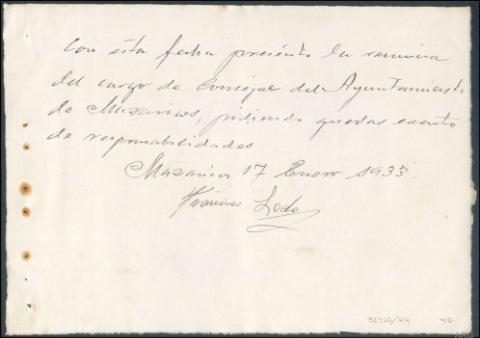 Con esta fecha presento la renuncia
del cargo de Concejal del Ayuntamiento
de Mazaricos, pidiendo quedar exento
de responsabilidades.
Mazaricos 17 Enero 1933.
Lado
32426/44 45